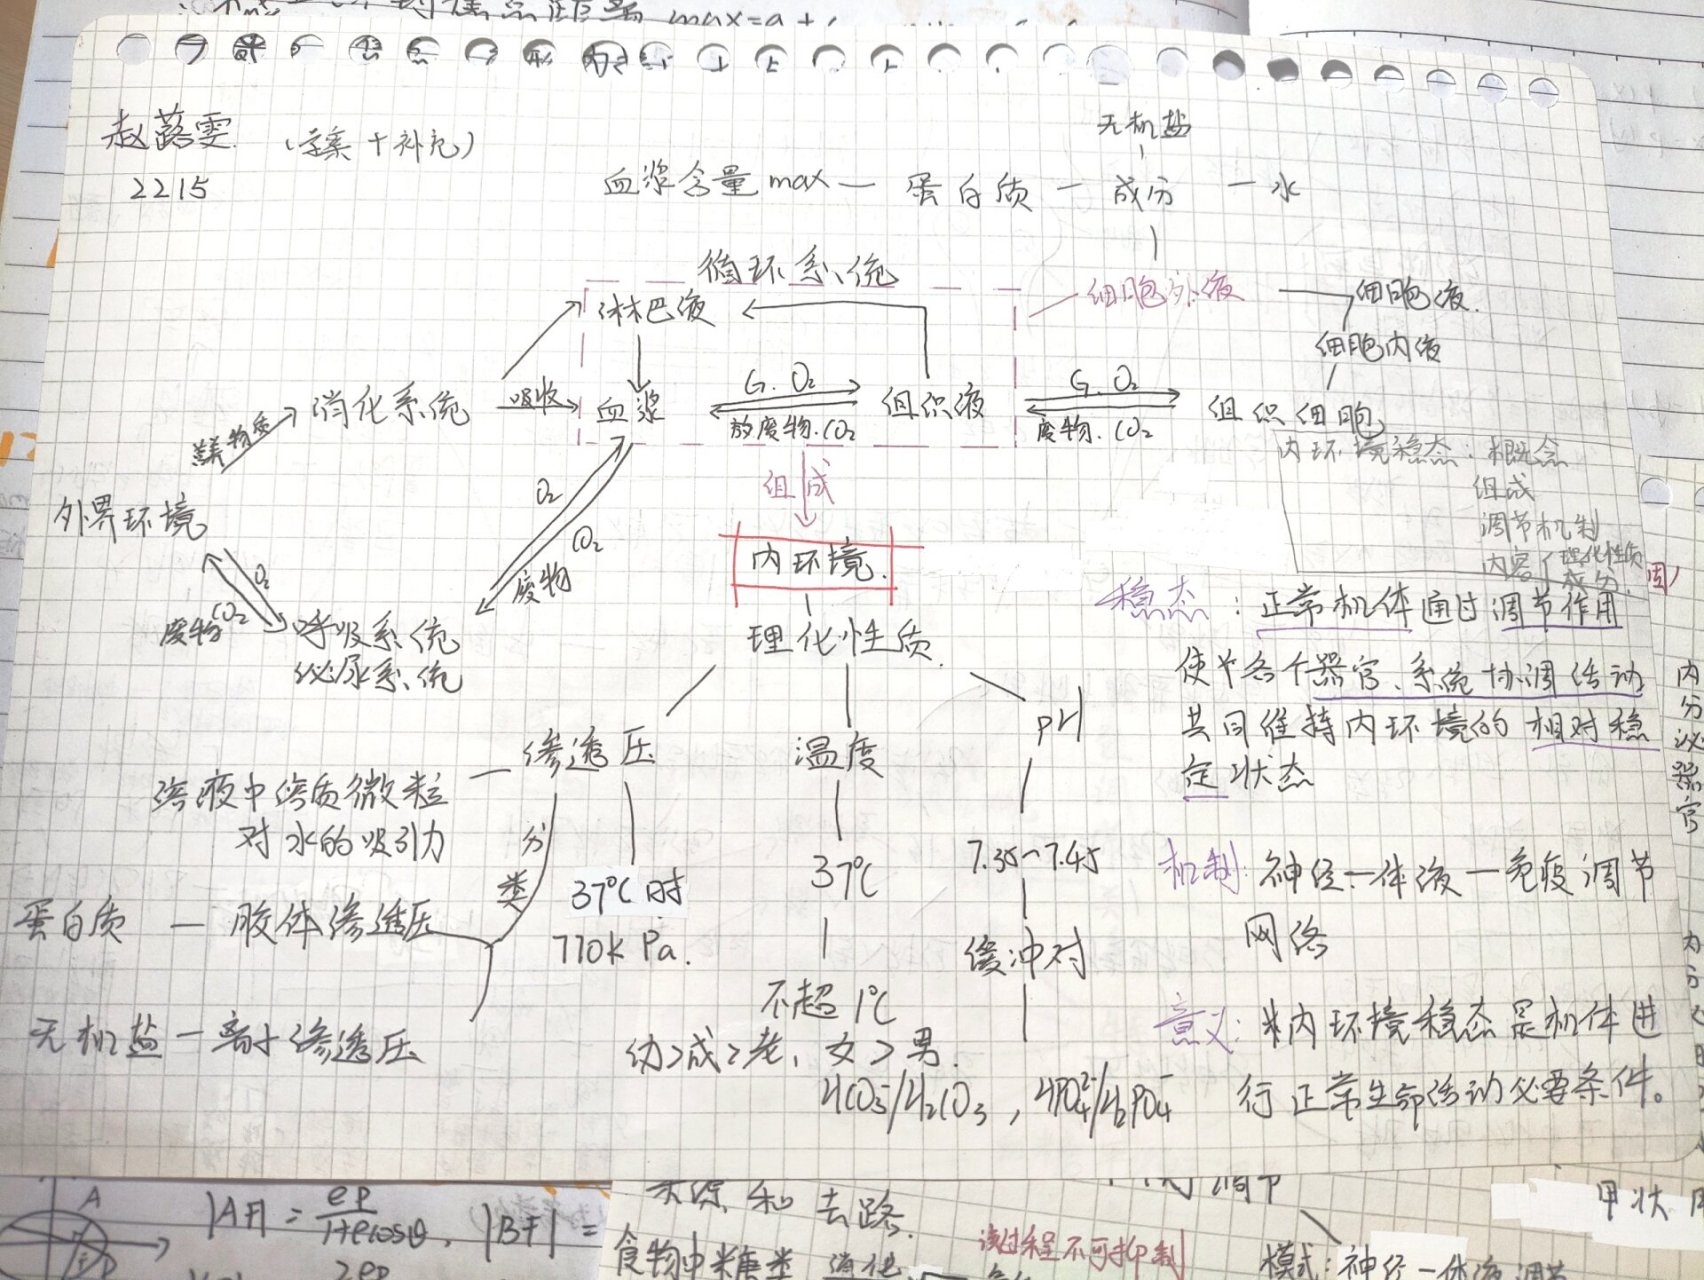 max=a+
赵 雯
(学案+补充)
2215
无机盐
血浆含量max — 蛋白质 — 成分 — 水
循环系统
淋巴液
细胞外液
细胞液.
细胞内液
消化系统
吸收
血浆
G. O₂
放废物.CO₂
组织液
G. O₂
废物.CO₂
组织细胞
营养物质
外界环境
O₂
CO₂
废物
O₂
CO₂
废物
呼吸系统
泌尿系统
组成
内环境.
理化性质.
内环境稳态:概念
组成
调节机制
内容(理化性质
成分
稳态:正常机体通过调节作用
使各个器官、系统协调活动
共同维持内环境的相对稳
定状态
渗透压
温度
pH
溶液中溶质微粒
对水的吸引力
分类
37℃时
770kPa.
37℃
不超1℃
幼>成>老、女>男.
7.35~7.45
缓冲对
HCO₃⁻/H₂CO₃,HPO₄²⁻/H₂PO₄⁻
蛋白质 — 胶体渗透压
无机盐 — 离子渗透压
机制:神经—体液—免疫调节
网络
意义:内环境稳态是机体进
行正常生命活动必要条件。
内分泌器官
|AF|=ep/1+ecosθ, |BF|=
2ep
A
来源和去路.
食物中糖类 消化
该过程不可抑制
调节
模式:神经—体液调节
甲状